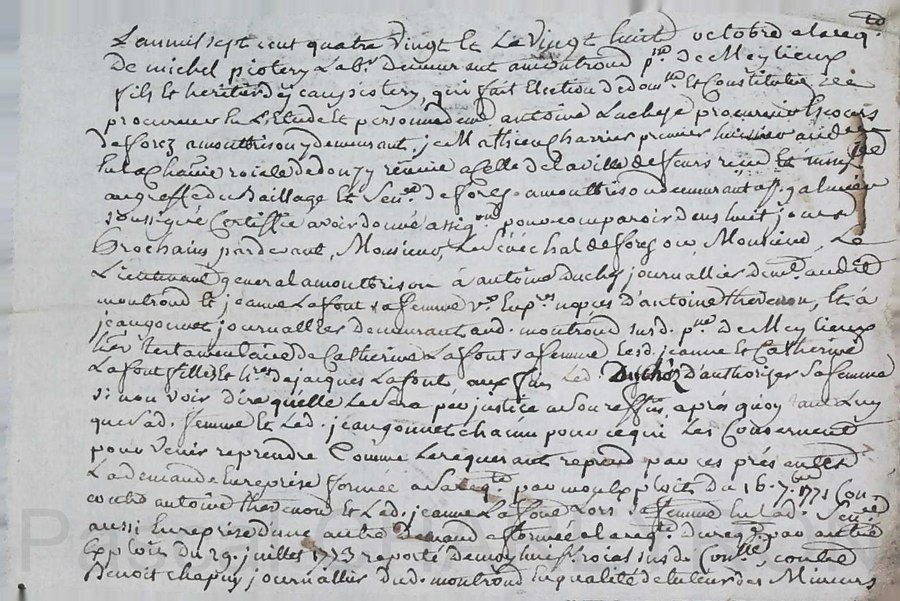 L'an mil sept cent quatre vingt et le vingt huit octobre a la req.te
De michel piotery Lab.r demeurant a montrond p.sse de Meylieux
fils et heritier de jean piotery, qui fait Election de dom.lle et Constitution de
procureur En L'Etude et personne de m.e antoine Lachese procureur Es cours
de forez a montbrison y demeurant, je Mathieu Charrier premier huissier audiencier
En la Chatnie roiale de donzy reunie a celle de la ville de feurs reçu et immat.lé
au greffe du Baillage et Sen.ée de forez a montbrison demeurant a S.t galmier
soussigné Certiffie avoir donné assig.on pour comparoir dans huit jours
Prochains pardevant, Monsieur, Le Senechal de forez ou Monsieur, Le
Lieutenant general a montbrison à antoine Duchez journallier dem.t audit
montrond et jeanne Lafont sa femme v.e En p.res nopces d'antoine thevenon, Et à
jean gonnet journallier demeurant aud. montrond susd. p.sse de Meylieux
her. testamentaire de Catherine Lafont sa femme Lesd. jeanne et Catherine
Lafont filles et h.res de jacques Lafont, aux fins Led. Duchez d'authoriser sa femme
si non voir dire qu'elle Le sera par justice a son reffus, après quoy tant Luy
que Lad. femme et Led. jean gonnet chacun pour ce qui Les Concernent
pour Venir reprendre Comme Le requerant reprend par ces présantes
La demande En reprise formée a sa req.te par mon Exploit du 16. 7.bre 1771 Con-
contre antoine thevenon et Lad. jeanne Lafont Lors sa femme En Lad. Sen.ée
aussi En reprise d'une autre Demand.e formée a la req.te du req.t par autre
Exploit du 29. juillet 1773 raporté de moy huiss.r roial susd. Con.llé, contre
Benoit chapuy journallier dud. montrond En qualité de tuteur des Mineurs